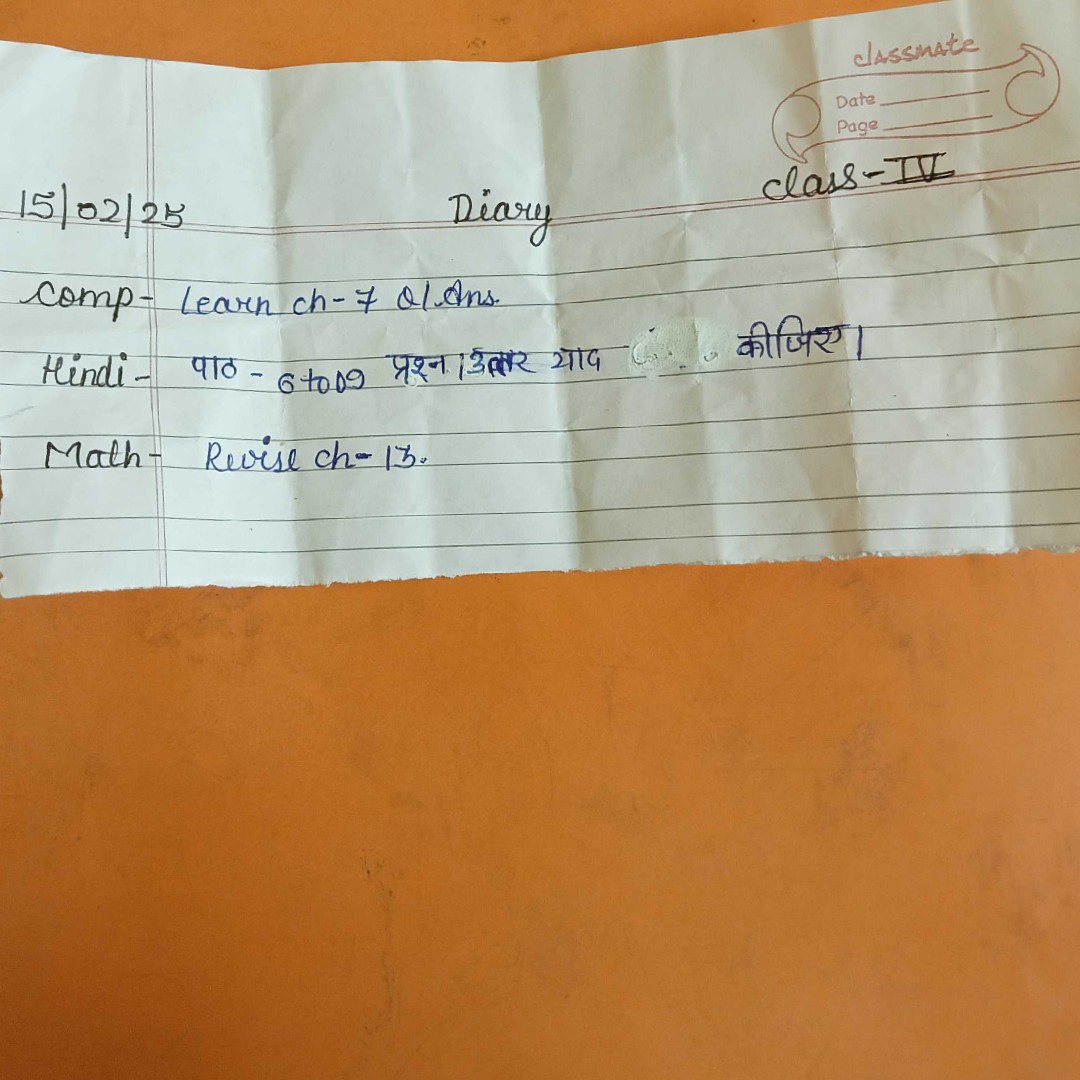 classmate
Date
Page
15/02/25 Diary Class-IV
Comp- Learn ch-7 Q/Ans.
Hindi- पाठ - 6 to 09 प्रश्न/उत्तर याद कीजिए।
Math- Revise ch-13.